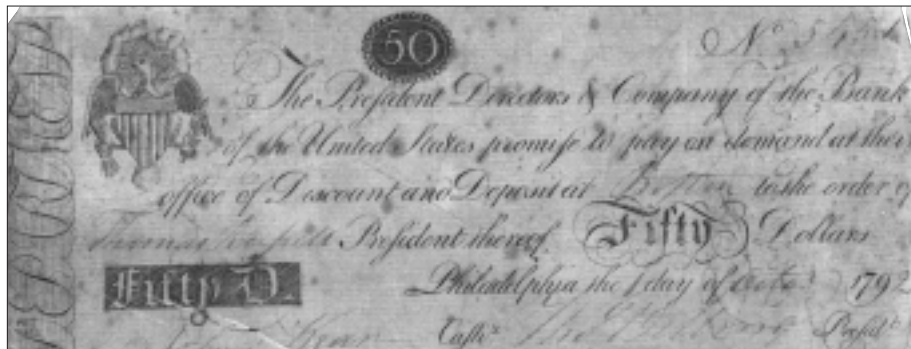 50
No.
The President Directors & Company of the Bank
of the United States promise to pay on demand at their
office of Discount and Deposit at Boston to the order of
Thomas Russell President thereof Fifty Dollars
Fifty D.
Philadelphia the 1 day of 1792
Cashr. Presidt.